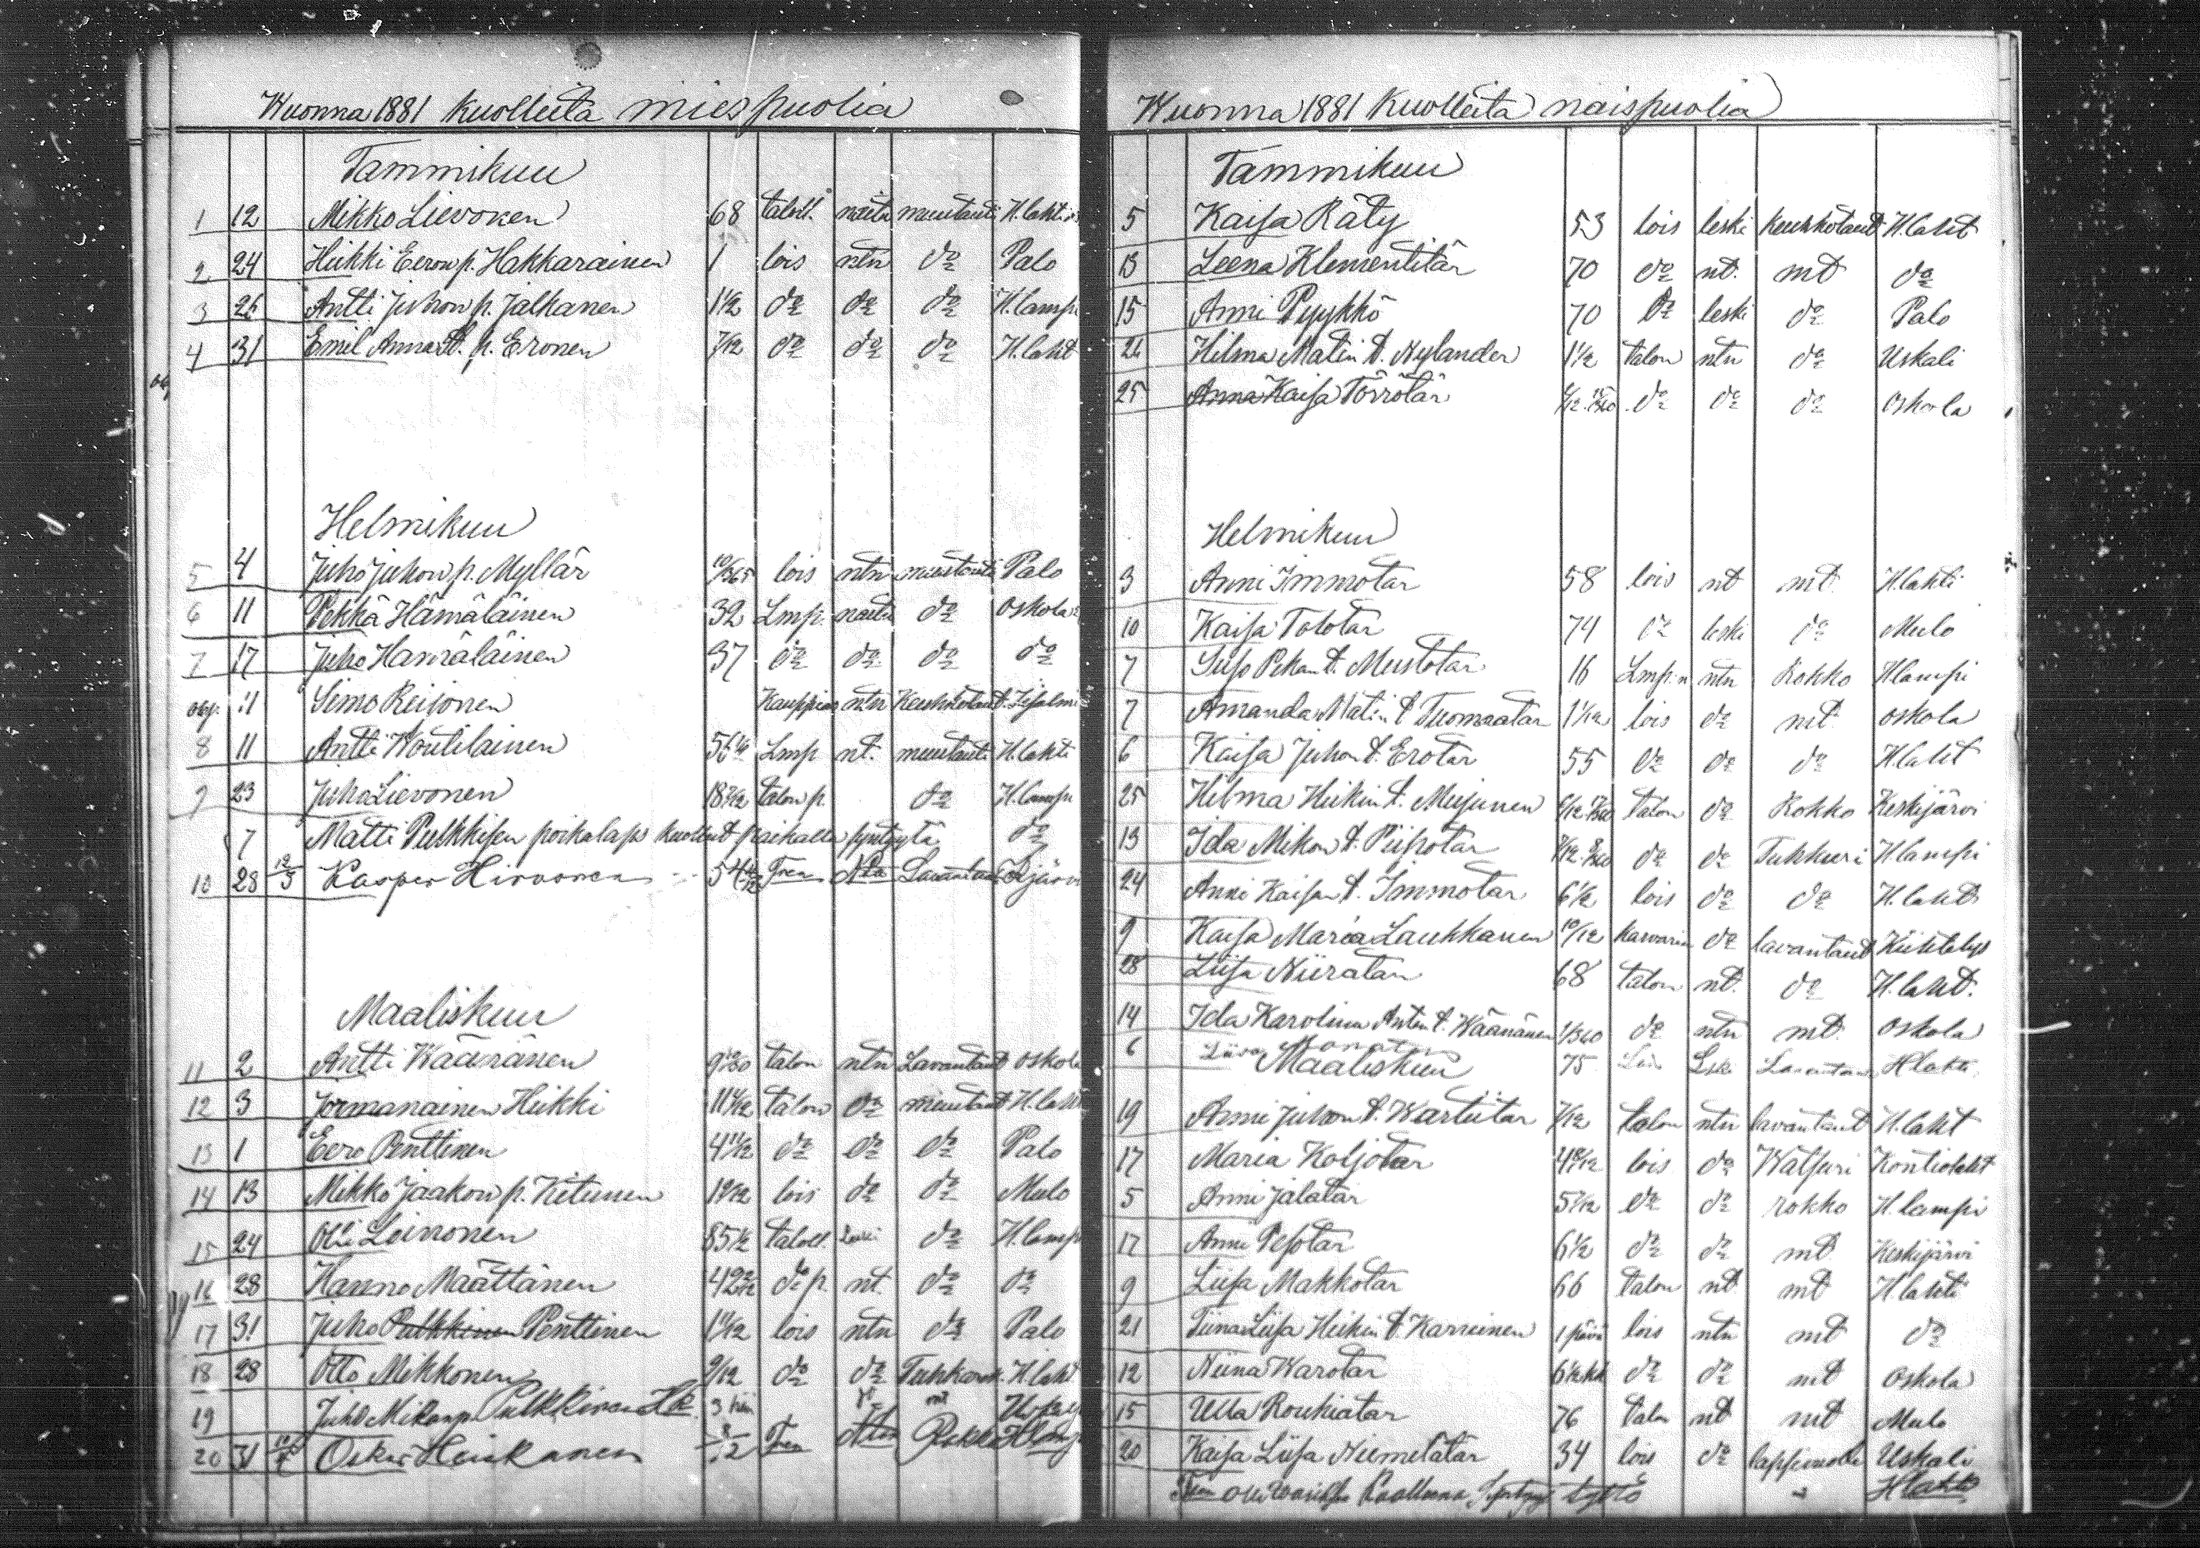 Wuonna 1881 Kuolleita miespuolia
Tammikuu
1 12 Mikko Lievonen 68 taloll. naitu muutauti H.lahti
2 24 Heikki Eeron p. Hakkarainen 1 lois ntn do Palo
3 26 Antti Juhon p. Jalkanen 1 1/2 do do do H.lampi
4 31 Emil Anna t. p. Eronen 7/12 do do do H.laht
Helmikuu
5 4 Juho Juhon p. Myllär 10/365 lois ntn muutauti Palo
6 11 Pekka Hämäläinen 32 Lmp. naitu do Oskola
7 17 Juho Hämäläinen 37 do do do do
11 Simo Reijonen Kauppias ntn Keuhkotaut.
8 11 Antti Woutilainen 56 Lmp nt. muutauti H.lahti
9 23 Juho Lievonen 18 talon p. do H.lampi
7 Matti Pulkkisen poikalaps kuollut paikalla syntyytä do
10 28 Kasper Hirvonen
Maaliskuu
11 2 Antti Wäänänen 9 talon ntn Lavantaut Oskola
12 3 Jormanainen Heikki 11 talon do muutaut H.laht
13 1 Eero Penttinen 4 11/12 do do do Palo
14 13 Mikko Jaakon p. Ketunen lois do do Mulo
15 24 Olli Loinonen 85 1/2 taloll. Leski do H.lamp
16 28 Hannu Määttänen 42 do p. nt. do do
17 31 Juho Pulkkinen Penttinen lois ntn do Palo
18 28 Otto Mikkonen 9/12 do do Tuhkarok. H.laht
19 Juho Mikon p. Pulkkinen
20 31 Oskar Heiskanen
Wuonna 1881 Kuolleita naispuolia
Tammikuu
5 Kaisa Räty 53 lois leski keuhkotaut H.laht
13 Leena Klementitär 70 do nt. mt do
15 Anni Pyykkö 70 do leski do Palo
26 Hilma Matin t. Nylander 1 1/2 talon ntn do Uskali
25 Anna Kaisa Törrötär do do do Oskola
Helmikuu
3 Anni Immotar 58 lois nt mt. H.lahti
10 Kaisa Tolotar 74 do leski do Mulo
7 Siiso Pekan t. Mustotar 16 Lmp:n ntn Rokko H.lampi
7 Amanda Matin t Tuomaatar 1 1/12 lois do mt. Oskola
6 Kaisa Juhon t. Erotar 55 do do do H.laht
25 Hilma Heikin t. Meijunen talon do Rokko Keskijärvi
13 Ida Mikon t. Piipotar do do Tuhkuri H.lampi
24 Anni Kaisan t. Immotar 6 1/2 lois do do H.laht
9 Kaisa Maria Laukkanen 10/12 karvarin do lavantaut Kiihtelys
28 Liisa Niiratar 68 talon nt. do H.laht.
14 Ida Karoliina Antin t. Wäänänen 1/360 do ntn mt. Oskola
6 Liisa 75 Lois Leski Lavantau H.laht.
Maaliskuu
19 Anni Juhon t. Wartiitar 7/12 talon ntn lavantaut H.laht
17 Maria Koljotar 4 lois do Watsuri Kontiolaht
5 Anni Jalatar 5 7/12 do do rokko H.lampi
17 Anni Pesotar 6 1/2 do do mt Keskijärvi
9 Liisa Makkotar 66 talon nt mt H.lahti
21 Tiina Liisa Heikin t. Karreinen 1 päivä lois ntn mt do
12 Niina Warotar 6 1/2 kk do do mt Oskola
15 Ulla Roukiatar 76 talon nt mt Mulo
20 Kaisa Liisa Niemelätär 34 lois do lapsivuode Uskali
Kuolleena Syntynyt tyttö H.laht